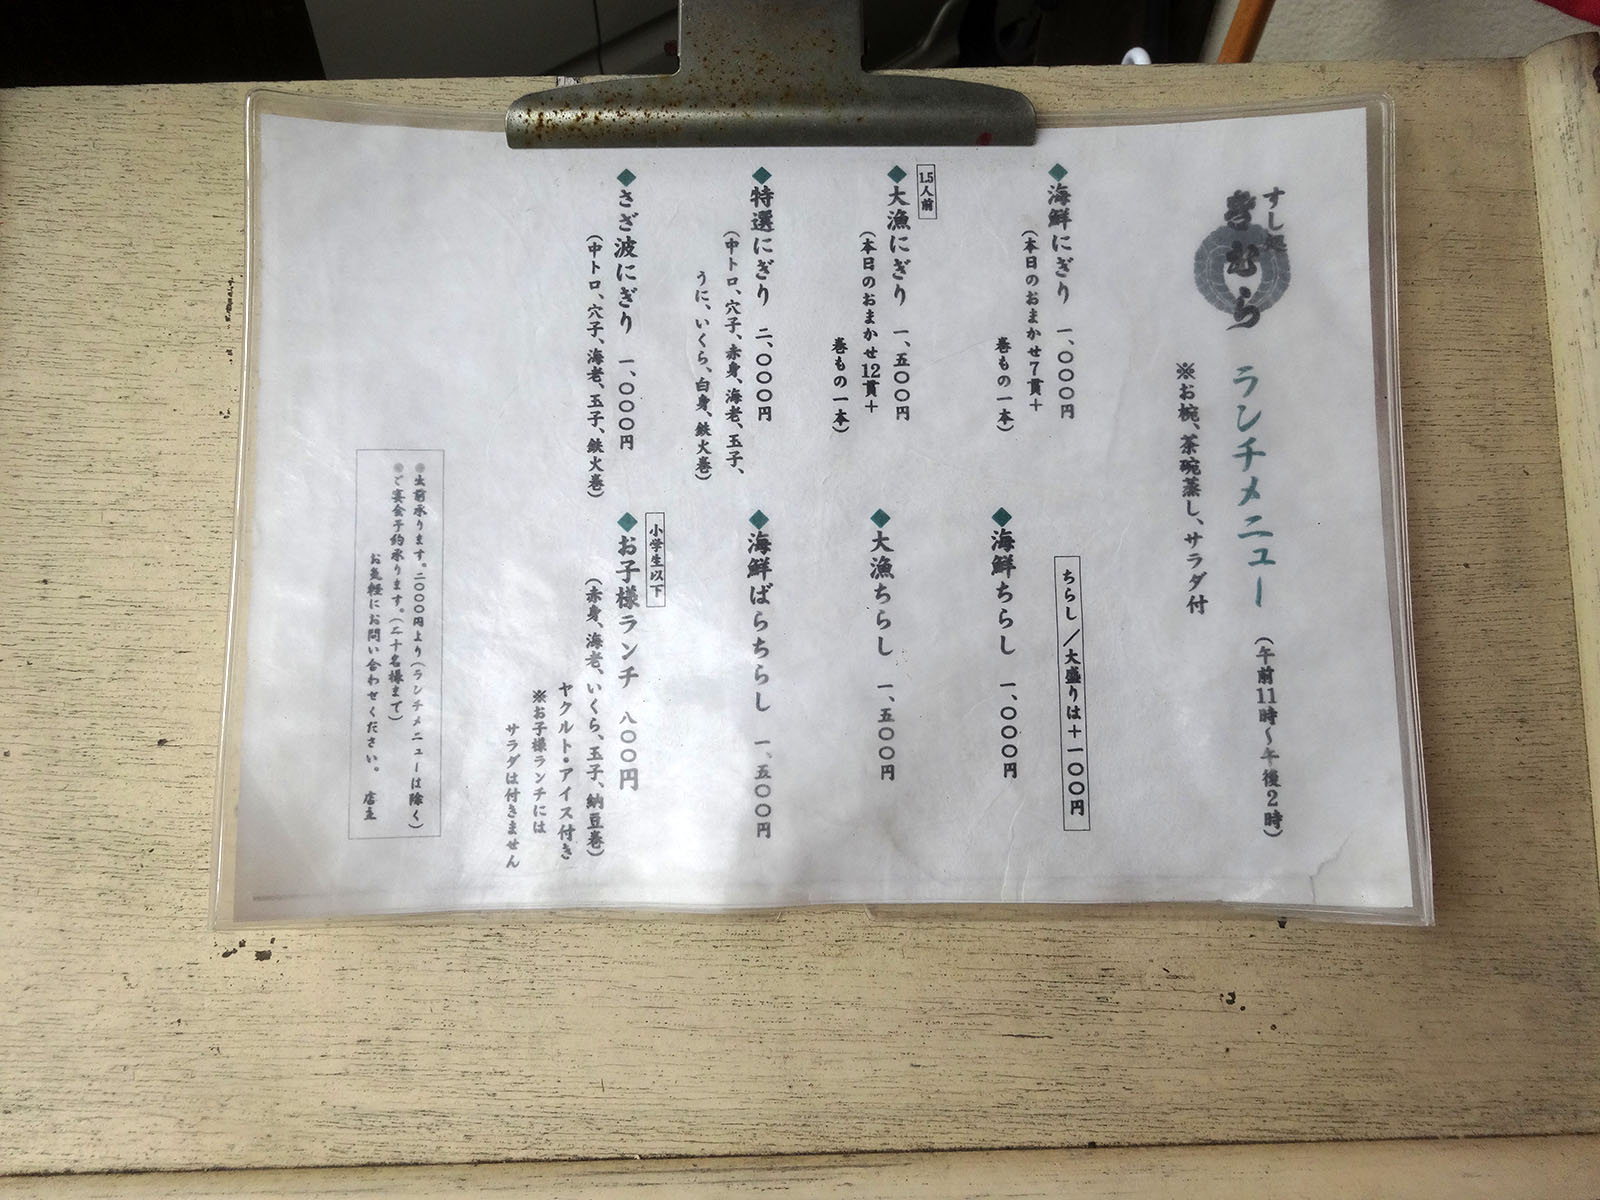 すし処
きむら
ランチメニュー (午前11時〜午後2時)
※お椀、茶碗蒸し、サラダ付
◆海鮮にぎり 一、〇〇〇円
(本日のおまかせ7貫+
巻もの一本)
1.5人前
◆大漁にぎり 一、五〇〇円
(本日のおまかせ12貫+
巻もの一本)
◆特選にぎり 二、〇〇〇円
(中トロ、穴子、赤身、海老、玉子、
うに、いくら、白身、鉄火巻)
◆さざ波にぎり 一、〇〇〇円
(中トロ、穴子、海老、玉子、鉄火巻)
ちらし/大盛りは+一〇〇円
◆海鮮ちらし 一、〇〇〇円
◆大漁ちらし 一、五〇〇円
◆海鮮ばらちらし 一、五〇〇円
小学生以下
◆お子様ランチ 八〇〇円
(赤身、海老、いくら、玉子、納豆巻)
ヤクルト・アイス付き
※お子様ランチには
サラダは付きません
●出前承ります。二〇〇〇円より(ランチメニューは除く)
●ご宴会予約承ります。(二十名様まで)
お気軽にお問い合わせください。 店主